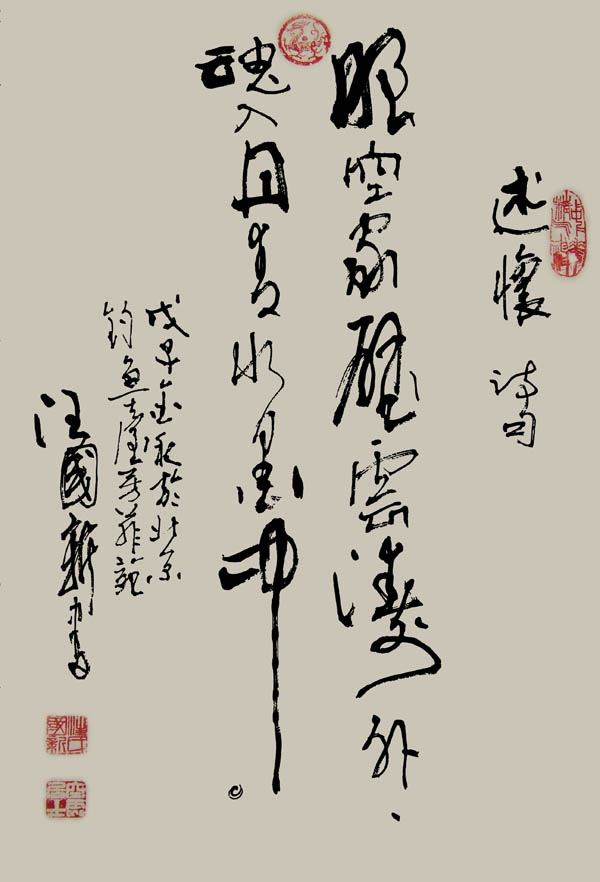 述懷 詩句
眼空家壁雲濤外、
魂入丹青水墨中。
戊子金秋於北京
釣魚臺芳菲苑
汪國新書